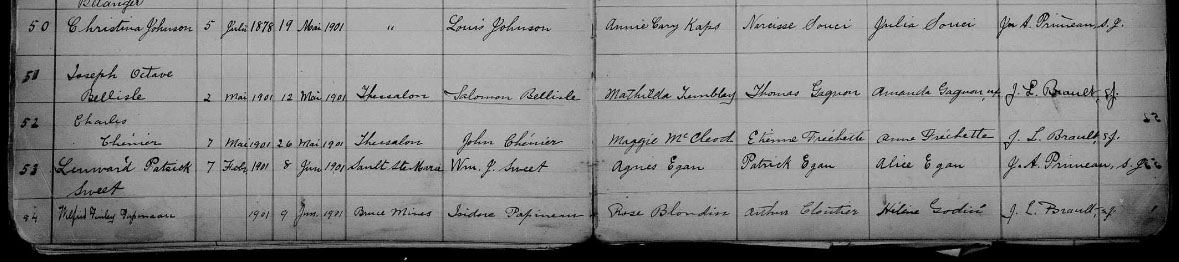 Belanger
50 Christina Johnson 5 Juli 1878 19 Mai 1901 " Louis Johnson Annie Cary Kaps Narcisse Souci Julia Souci Jos A. Primeau, s.j.
51 Joseph Octave
Bellisle 2 Mai 1901 12 Mai 1901 Thessalon Salomon Bellisle Mathilda Tremblay Thomas Gagnon Amanda Gagnon J. L. Brault, s.j.
52 Charles
Chénier 7 Mai 1901 26 Mai 1901 Thessalon John Chénier Maggie McCleod Etienne Fréchette Anna Fréchette J. L. Brault, s.j.
53 Linward Patrick 7 Feb 1901 8 Jun 1901 Sault Ste Marie Wm. J. Sweet Agnes Egan Patrick Egan Alice Egan Jos A. Primeau, s.j.
Sweet
54 Wilfred Papineau 1901 9 Jun. 1901 Bruce Mines Isidore Papineau Rose Blondin Arthur Cloutier Hélène Godin J. L. Brault, s.j.